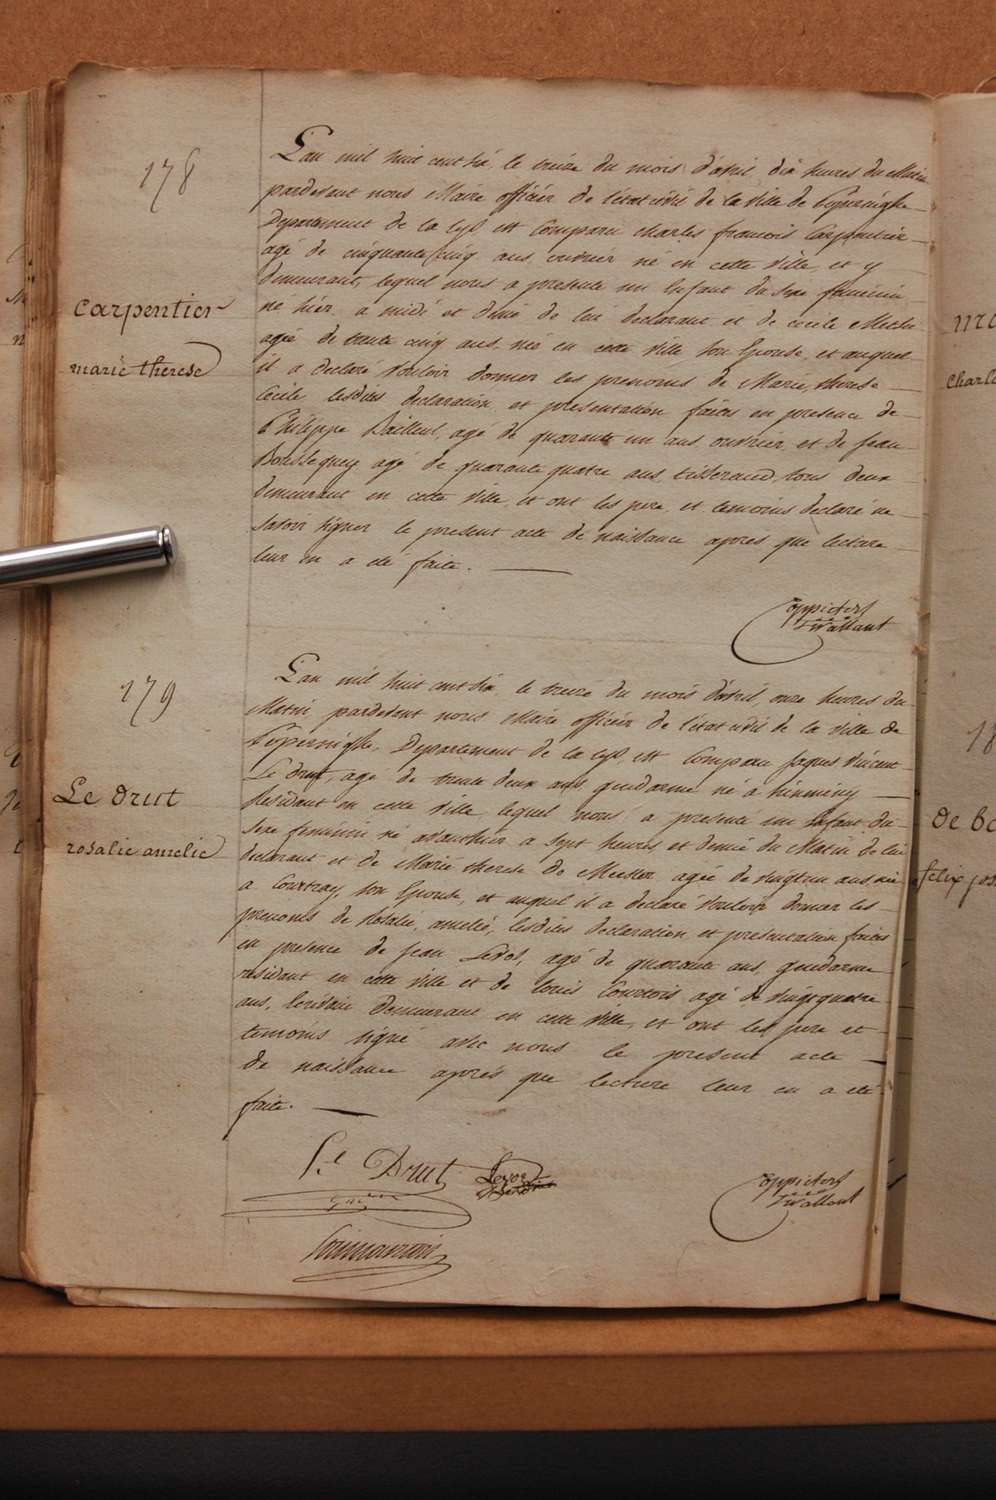 178
Carpentier
marie therese
L'an mil huit cent dix le treize du mois d'avril dix heures du Matin
pardevant nous Maire officier de l'état civil de la ville de Poperinghe
Departement de la Lys est comparu charles francois Carpentier
agé de cinquante cinq ans ouvrier né en cette ville et y
demeurant, lequel nous a presenté un Enfant du sexe feminin
né hier a midi et demie de lui declarant et de cecile
agée de trente cinq ans née en cette ville son Epouse, et auquel
il a declaré vouloir donner les prenoms de Marie, therese
Cecile lesdites declaration et presentation faites en presence de
Philippe Bailleul, agé de quarante un ans ouvrier et de Jean
agé de quarante quatre ans tisserand, tous deux
demeurant en cette ville, et ont les pere et temoins declaré ne
savoir signer le present acte de naissance apres que lecture
leur en a été faite.
179
Le Drut
rosalie amelie
L'an mil huit cent dix le treize du mois d'avril, onze heures du
Matin pardevant nous Maire officier de l'état civil de la ville de
Poperinghe, Departement de la Lys est comparu Jaques Vincent
Le Drut, agé de trente deux ans gendarme né à
Residant en cette ville lequel nous a presenté un Enfant du
sexe feminin né avanthier a sept heures et demie du Matin de lui
declarant et de Marie therese De Meester agée de vingt un ans née
a Courtray, son Epouse, et auquel il a declaré vouloir donner les
prenoms de Rosalie, amelie, lesdites declaration et presentation faites
en presence de Jean agé de quarante ans, gendarme
residant en cette ville et de Louis Courtois agé de vingt quatre
ans, demeurant en cette ville, et ont les pere et
temoins signé avec nous le present acte
de naissance après que lecture leur en a été
faite.
Le Drut